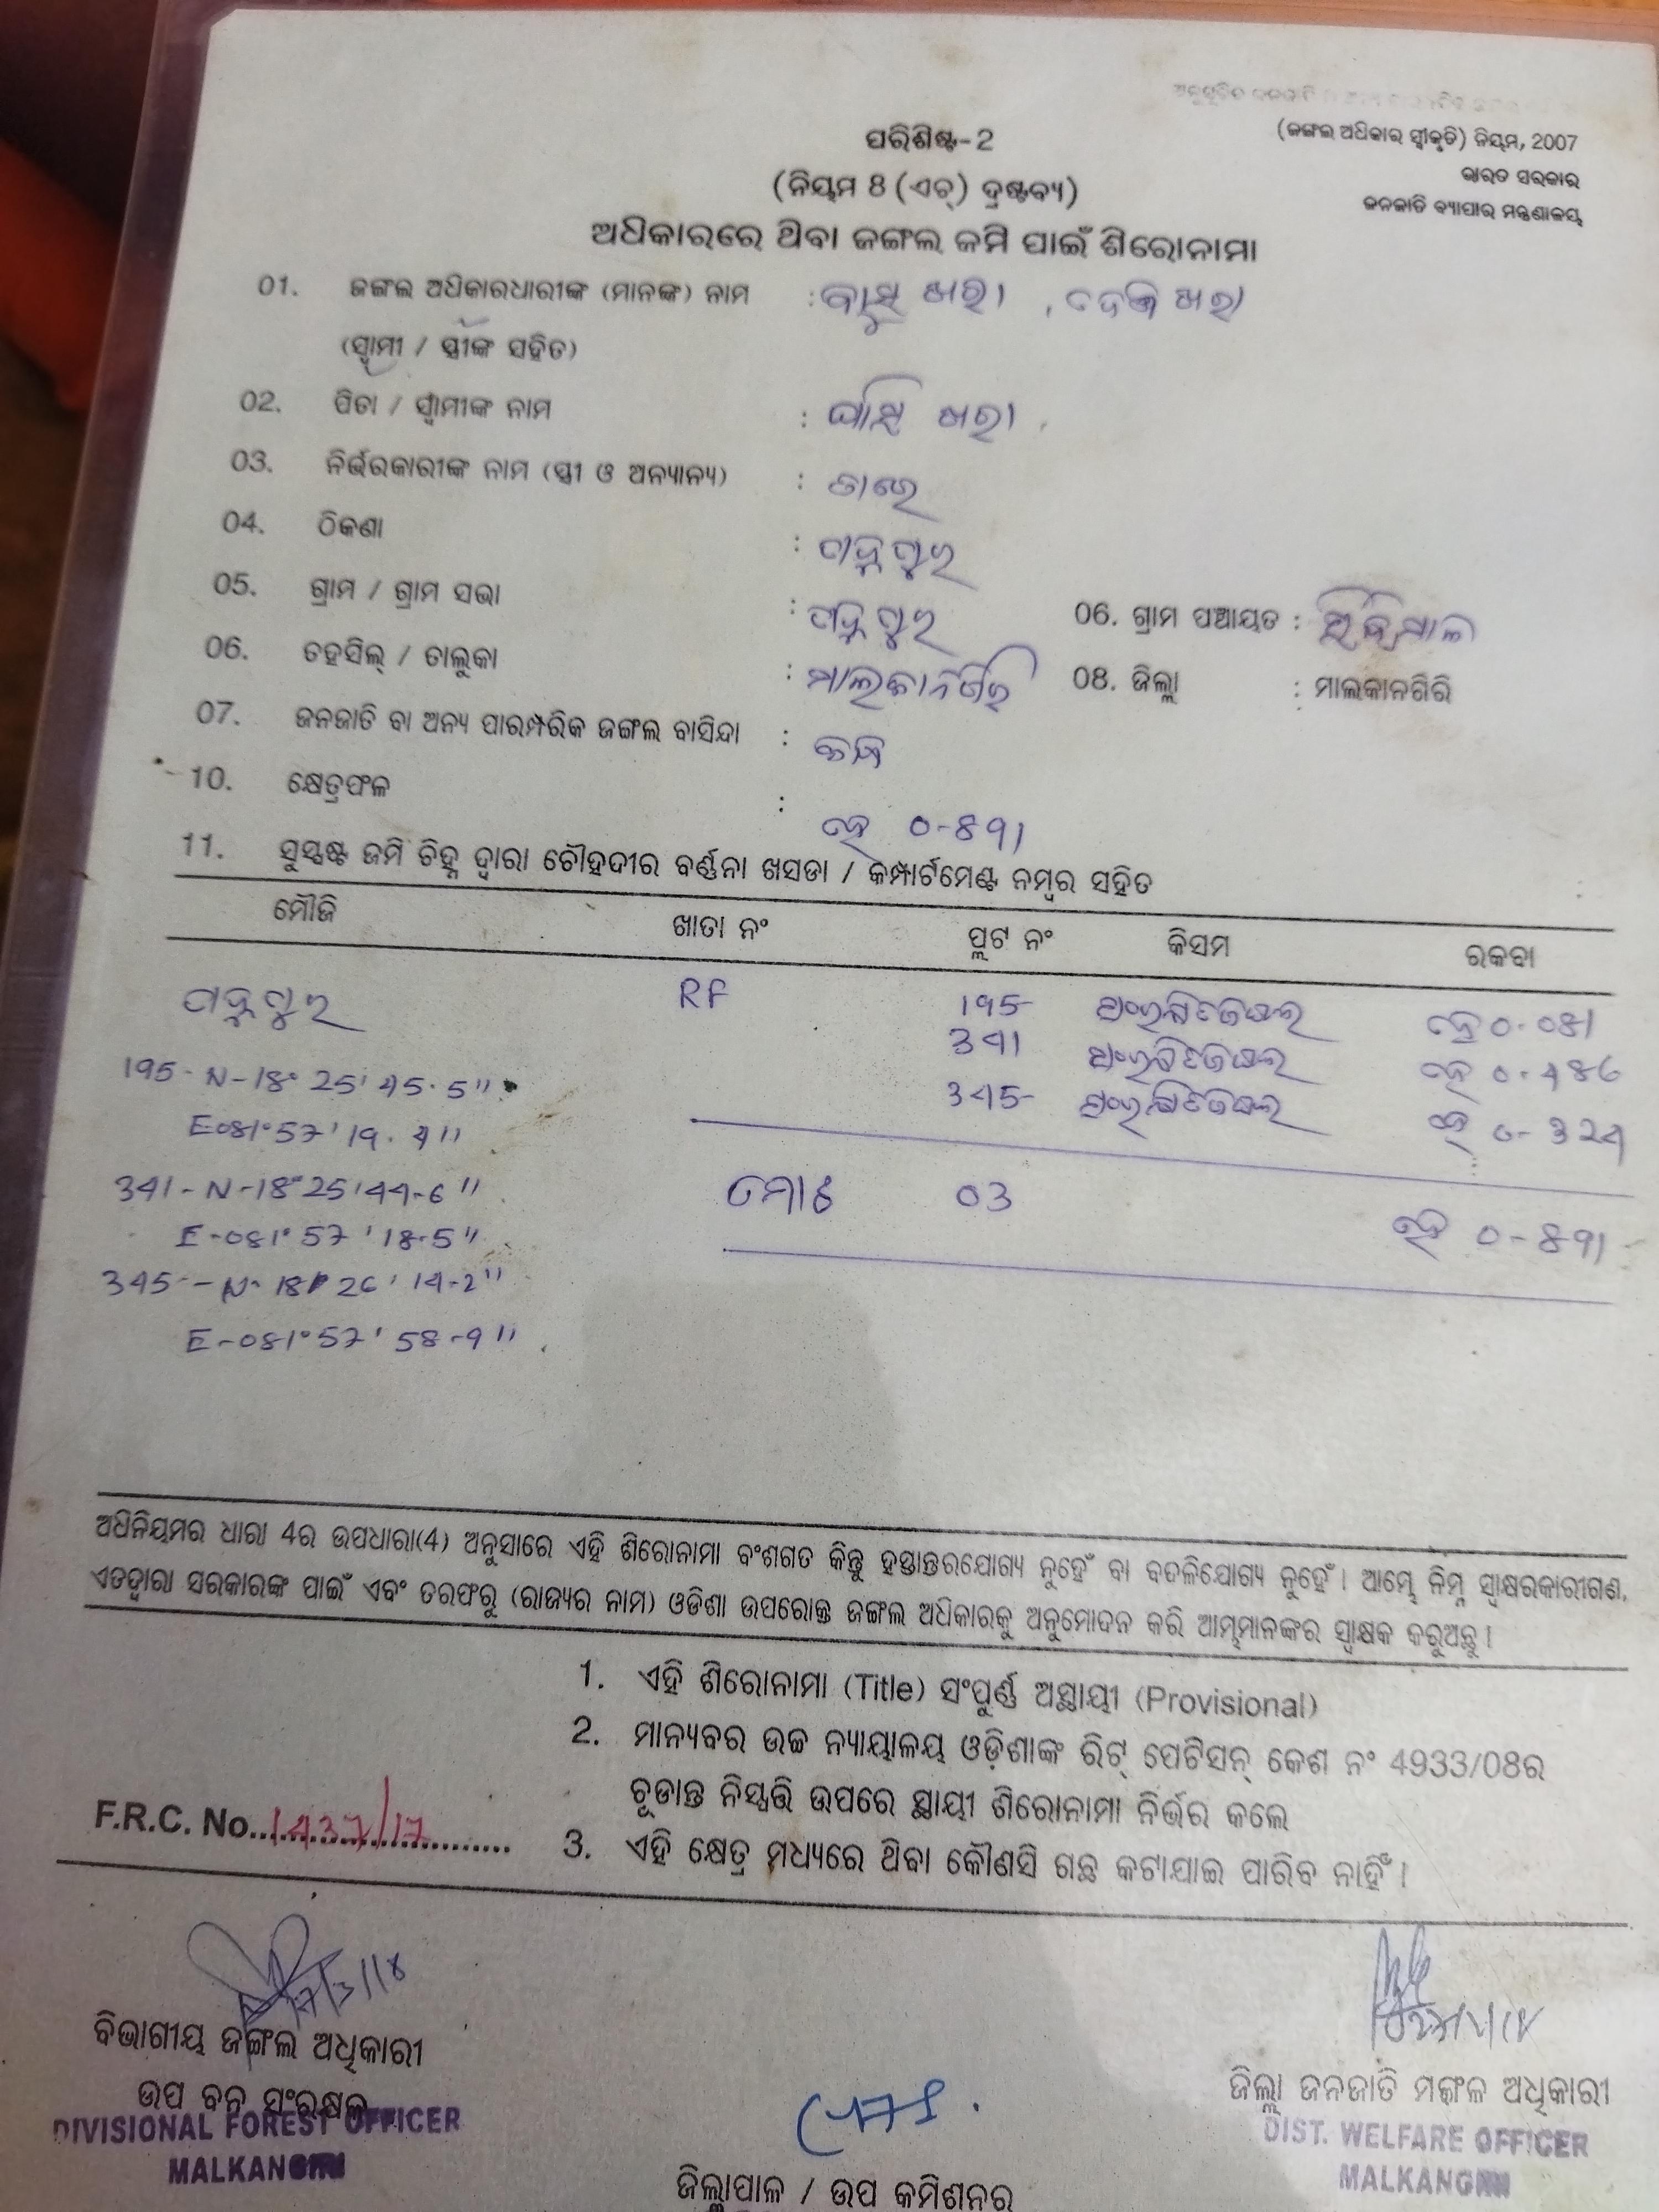 (ଜଙ୍ଗଲ ଅଧିକାର ସ୍ୱୀକୃତି) ନିୟମ, 2007
ଭାରତ ସରକାର
ଜନଜାତି ବ୍ୟାପାର ମନ୍ତ୍ରଣାଳୟ
ପରିଶିଷ୍ଟ-2
(ନିୟମ 8 (ଏଚ୍) ଦ୍ରଷ୍ଟବ୍ୟ)
ଅଧିକାରରେ ଥିବା ଜଙ୍ଗଲ ଜମି ପାଇଁ ଶିରୋନାମା
01. ଜଙ୍ଗଲ ଅଧିକାରଧାରୀଙ୍କ (ମାନଙ୍କ) ନାମ : ଖରା , ଖରା
(ସ୍ୱାମୀ / ସ୍ତ୍ରୀଙ୍କ ସହିତ)
02. ପିତା / ସ୍ୱାମୀଙ୍କ ନାମ : ଖରା
03. ନିର୍ଭରକାରୀଙ୍କ ନାମ (ସ୍ତ୍ରୀ ଓ ଅନ୍ୟାନ୍ୟ) :
04. ଠିକଣା :
05. ଗ୍ରାମ / ଗ୍ରାମ ସଭା : 06. ଗ୍ରାମ ପଞ୍ଚାୟତ :
06. ତହସିଲ୍ / ତାଲୁକା : ମାଲକାନଗିରି 08. ଜିଲ୍ଲା : ମାଲକାନଗିରି
07. ଜନଜାତି ବା ଅନ୍ୟ ପାରମ୍ପରିକ ଜଙ୍ଗଲ ବାସିନ୍ଦା :
10. କ୍ଷେତ୍ରଫଳ : ହେ 0-891
11. ସୁସ୍ପଷ୍ଟ ଜମି ଚିହ୍ନ ଦ୍ୱାରା ଚୌହଦୀର ବର୍ଣ୍ଣନା ଖସଡା / କମ୍ପାର୍ଟମେଣ୍ଟ ନମ୍ବର ସହିତ
ମୌଜି ଖାତା ନଂ ପ୍ଲଟ ନଂ କିସମ ରକବା
RF 195 ହେ 0.081
341 ହେ 0.486
195- N-18° 25' 45.5"
345 ହେ 0-324
E-081° 57' 19.4"
341- N-18° 25' 44-6"
ମୋଟ 03 ହେ 0-891
E-081° 57' 18-5"
345- N- 18° 26' 14-2"
E-081° 57' 58-9"
ଅଧିନିୟମର ଧାରା 4ର ଉପଧାରା(4) ଅନୁସାରେ ଏହି ଶିରୋନାମା ବଂଶଗତ କିନ୍ତୁ ହସ୍ତାନ୍ତରଯୋଗ୍ୟ ନୁହେଁ ବା ବଦଳିଯୋଗ୍ୟ ନୁହେଁ। ଆମ୍ଭେ ନିମ୍ନ ସ୍ୱାକ୍ଷରକାରୀଗଣ,
ଏତଦ୍ୱାରା ସରକାରଙ୍କ ପାଇଁ ଏବଂ ତରଫରୁ (ରାଜ୍ୟର ନାମ) ଓଡିଶା ଉପରୋକ୍ତ ଜଙ୍ଗଲ ଅଧିକାରକୁ ଅନୁମୋଦନ କରି ଆମ୍ଭମାନଙ୍କର ସ୍ୱାକ୍ଷକ କରୁଅଛୁ।
1. ଏହି ଶିରୋନାମା (Title) ସଂପୂର୍ଣ ଅସ୍ଥାୟୀ (Provisional)
2. ମାନ୍ୟବର ଉଚ୍ଚ ନ୍ୟାୟାଳୟ ଓଡ଼ିଶାଙ୍କ ରିଟ୍ ପେଟିସନ୍ କେଶ ନଂ 4933/08ର
ଚୂଡାନ୍ତ ନିସ୍ପତ୍ତି ଉପରେ ସ୍ଥାୟୀ ଶିରୋନାମା ନିର୍ଭର କଲେ
F.R.C. No. 1437/17
3. ଏହି କ୍ଷେତ୍ର ମଧ୍ୟରେ ଥିବା କୌଣସି ଗଛ କଟାଯାଇ ପାରିବ ନାହିଁ।
ବିଭାଗୀୟ ଜଙ୍ଗଲ ଅଧିକାରୀ
ଉପ ବନ ସଂରକ୍ଷକ
DIVISIONAL FOREST OFFICER
MALKANGIRI
ଜିଲ୍ଲା ଜନଜାତି ମଙ୍ଗଳ ଅଧିକାରୀ
DIST. WELFARE OFFICER
MALKANGIRI
ଜିଲ୍ଲାପାଳ / ଉପ କମିଶନର